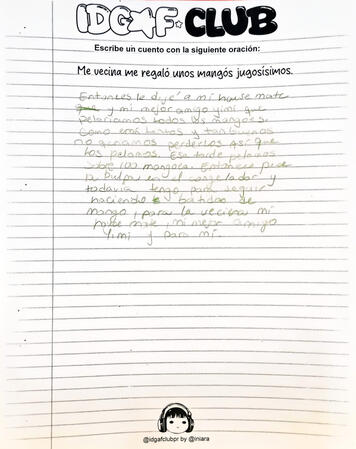 IDGAF CLUB
Escribe un cuento con la siguiente oración:
Me vecina me regaló unos mangós jugosísimos.
Entonces le dije a mi house mate
y mi mejor amigo yimi que
pelaríamos todos los mangoes.
Como eran tantos y
no perderlos así que
los pelamos. Esa tarde pelamos
sobre 100 mangoes. Entonces puse
la pulpa en el congelador y
todavía tengo para seguir
haciendo batidas de
mango, para la vecina mi
house mate, mi mejor amigo
Yimi y para mí.
@idgafclubpr by @iniara